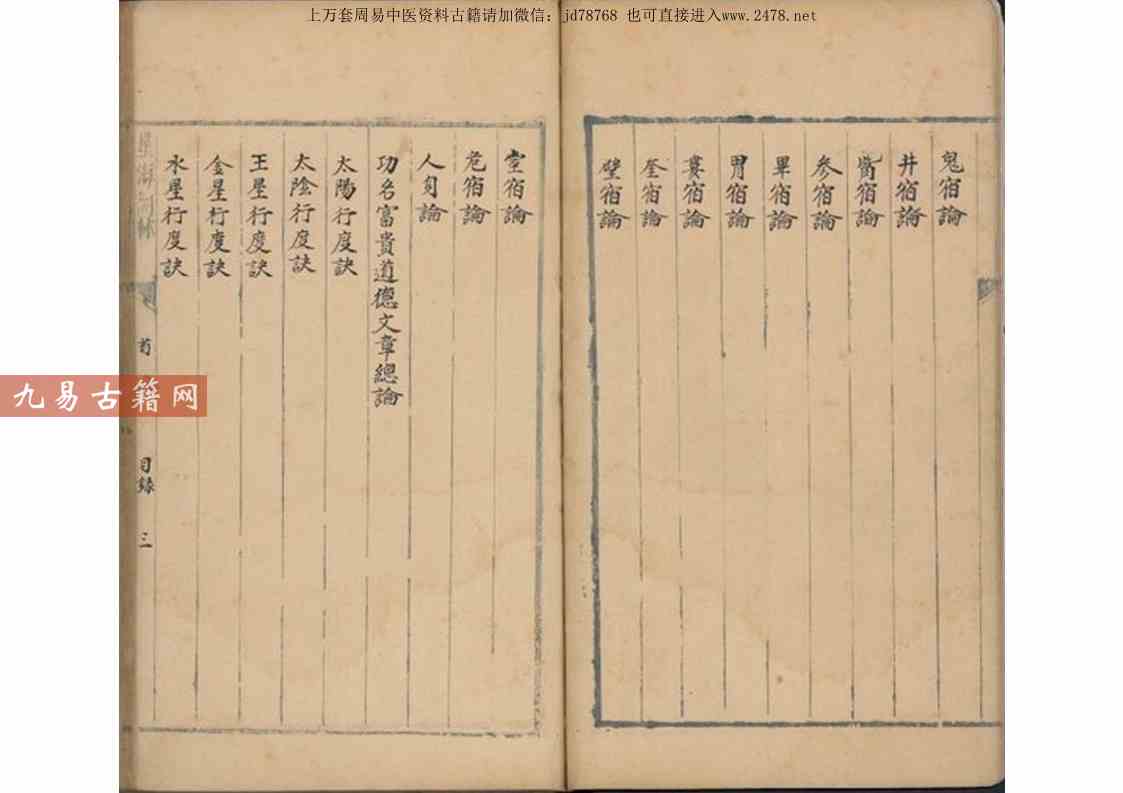 上万套周易中医资料古籍请加微信：jd78768 也可直接进入www.2478.net
鬼宿論
井宿論
觜宿論
参宿論
畢宿論
胃宿論
婁宿論
奎宿論
壁宿論
室宿論
危宿論
人旬論
功名富貴道德文章總論
太陽行度訣
太陰行度訣
王星行度訣
金星行度訣
水星行度訣
目錄 三
九易古籍网